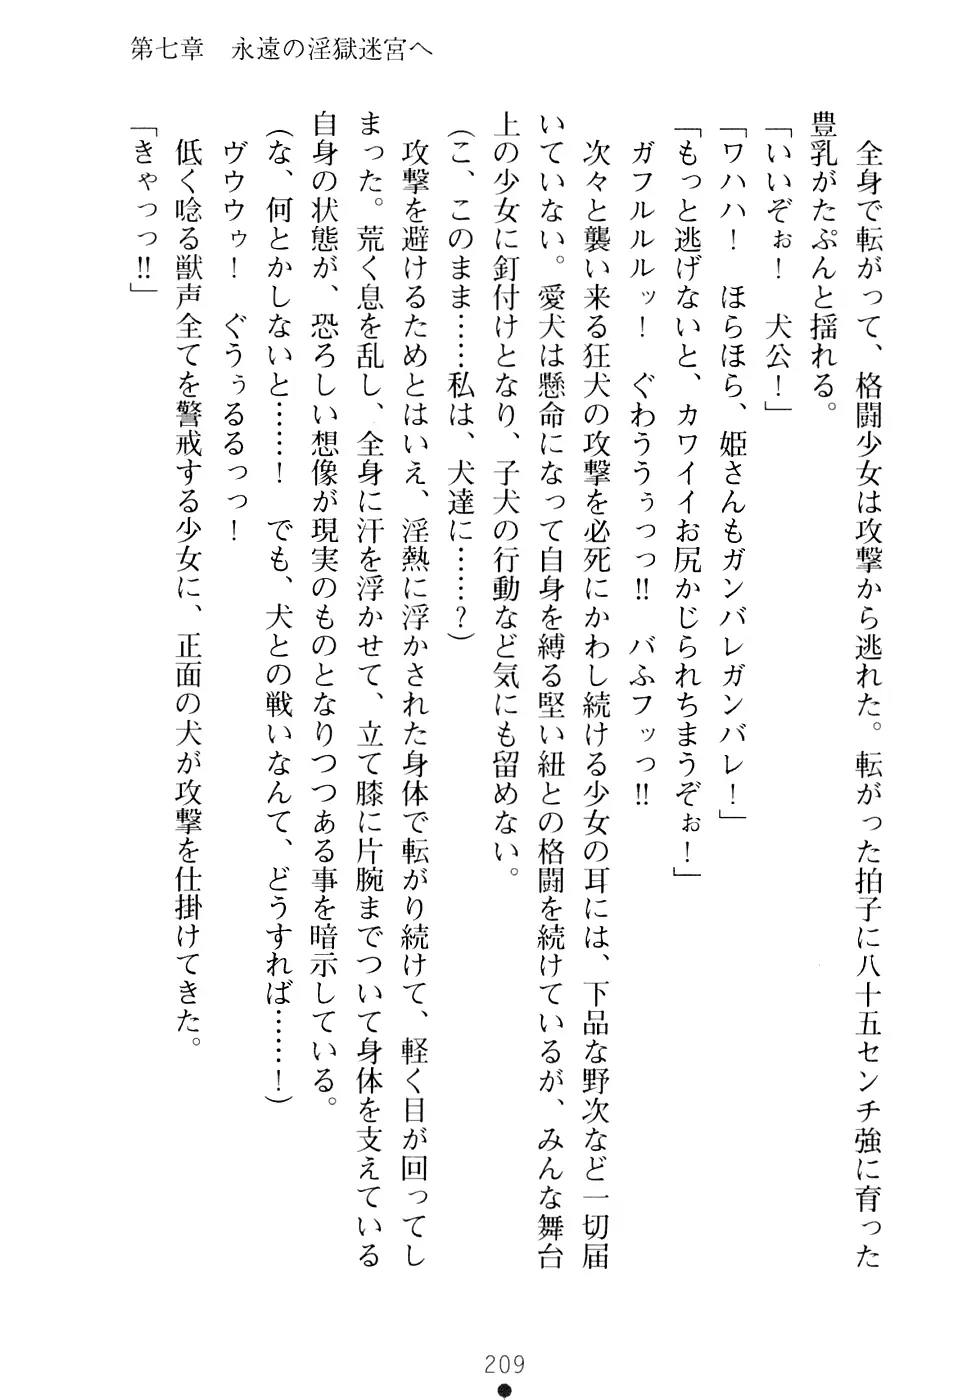 第七章　永遠の淫獄迷宮へ
　全身で転がって、格闘少女は攻撃から逃れた。転がった拍子に八十五センチ強に育った
豊乳がたぷんと揺れる。
「いいぞぉ！　犬公！」
「ワハハ！　ほらほら、姫さんもガンバレガンバレ！」
「もっと逃げないと、カワイイお尻かじられちまうぞぉ！」
　ガフルルルッ！　ぐわううぅっっ!!　バふフッっ!!
　次々と襲い来る狂犬の攻撃を必死にかわし続ける少女の耳には、下品な野次など一切届
いていない。愛犬は懸命になって自身を縛る堅い紐との格闘を続けているが、みんな舞台
上の少女に釘付けとなり、子犬の行動など気にも留めない。
（こ、このまま……私は、犬達に……？）
　攻撃を避けるためとはいえ、淫熱に浮かされた身体で転がり続けて、軽く目が回ってし
まった。荒く息を乱し、全身に汗を浮かせて、立て膝に片腕までついて身体を支えている
自身の状態が、恐ろしい想像が現実のものとなりつつある事を暗示している。
（な、何とかしないと……！　でも、犬との戦いなんて、どうすれば……！）
　ヴウウゥ！　ぐうぅるるっっ！
　低く唸る獣声全てを警戒する少女に、正面の犬が攻撃を仕掛けてきた。
「きゃっっ!!」
209